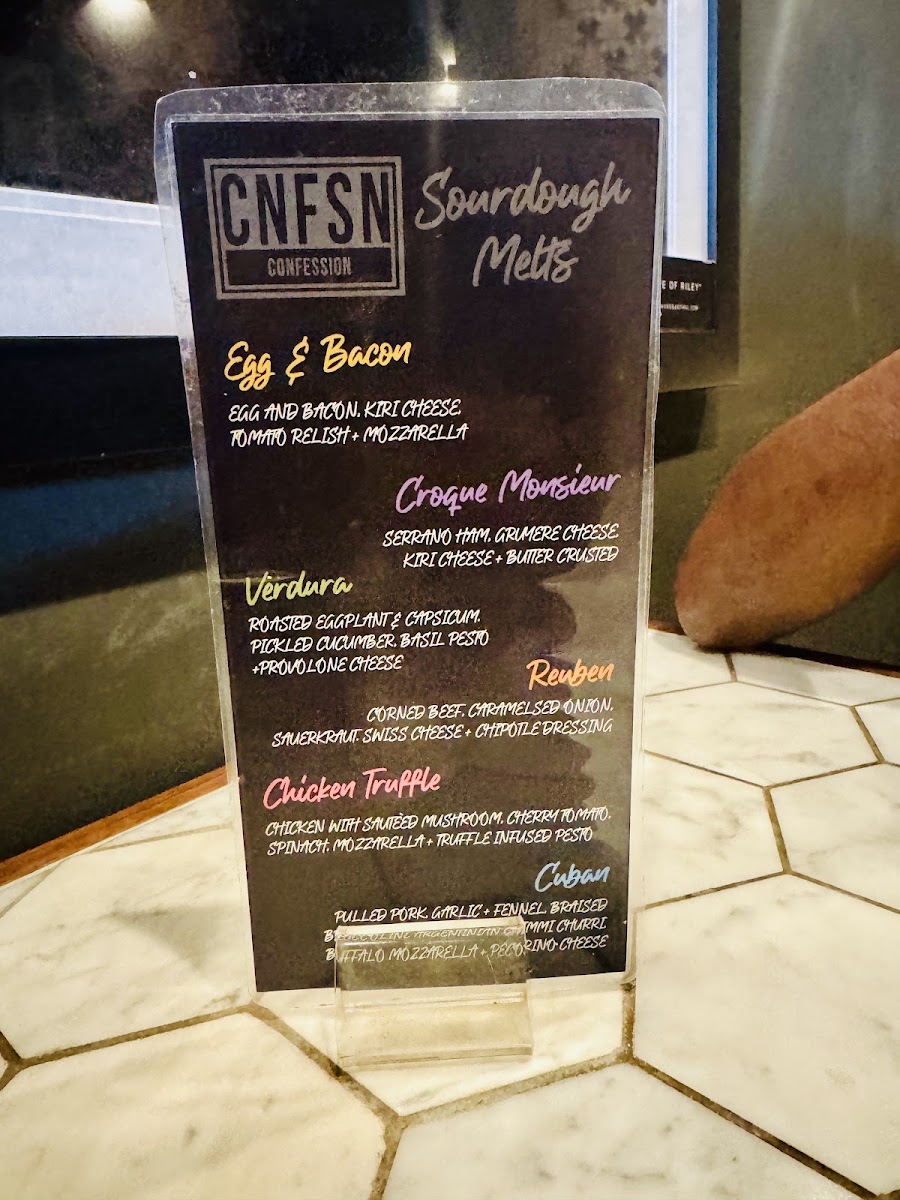 CNFSN
CONFESSION
Sourdough
Melts
E OF RILEY"
Egg & Bacon
EGG AND BACON. KIRI CHEESE.
TOMATO RELISH + MOZZARELLA
Croque Monsieur
SERRANO HAM. GRUMERE CHEESE
KIRI CHEESE + BUTTER CRUSTED
Verdura
ROASTED EGGPLANT & CAPSICUM.
PICKLED CUCUMBER. BASIL PESTO
+PROVOLONE CHEESE
Reuben
CORNED BEEF. CARAMELSED ONION.
SAUERKRAUT. SWISS CHEESE + CHIPOTLE DRESSING
Chicken Truffle
CHICKEN WITH SAUTÈED MUSHROOM. CHERRY TOMATO.
SPINACH. MOZZARELLA + TRUFFLE INFUSED PESTO
Cuban
PULLED PORK. GARLIC + FENNEL. BRAISED
ARGENTINIAN CHIMMI CHURRI
BUFFALO MOZZARELLA + PECORINO CHEESE